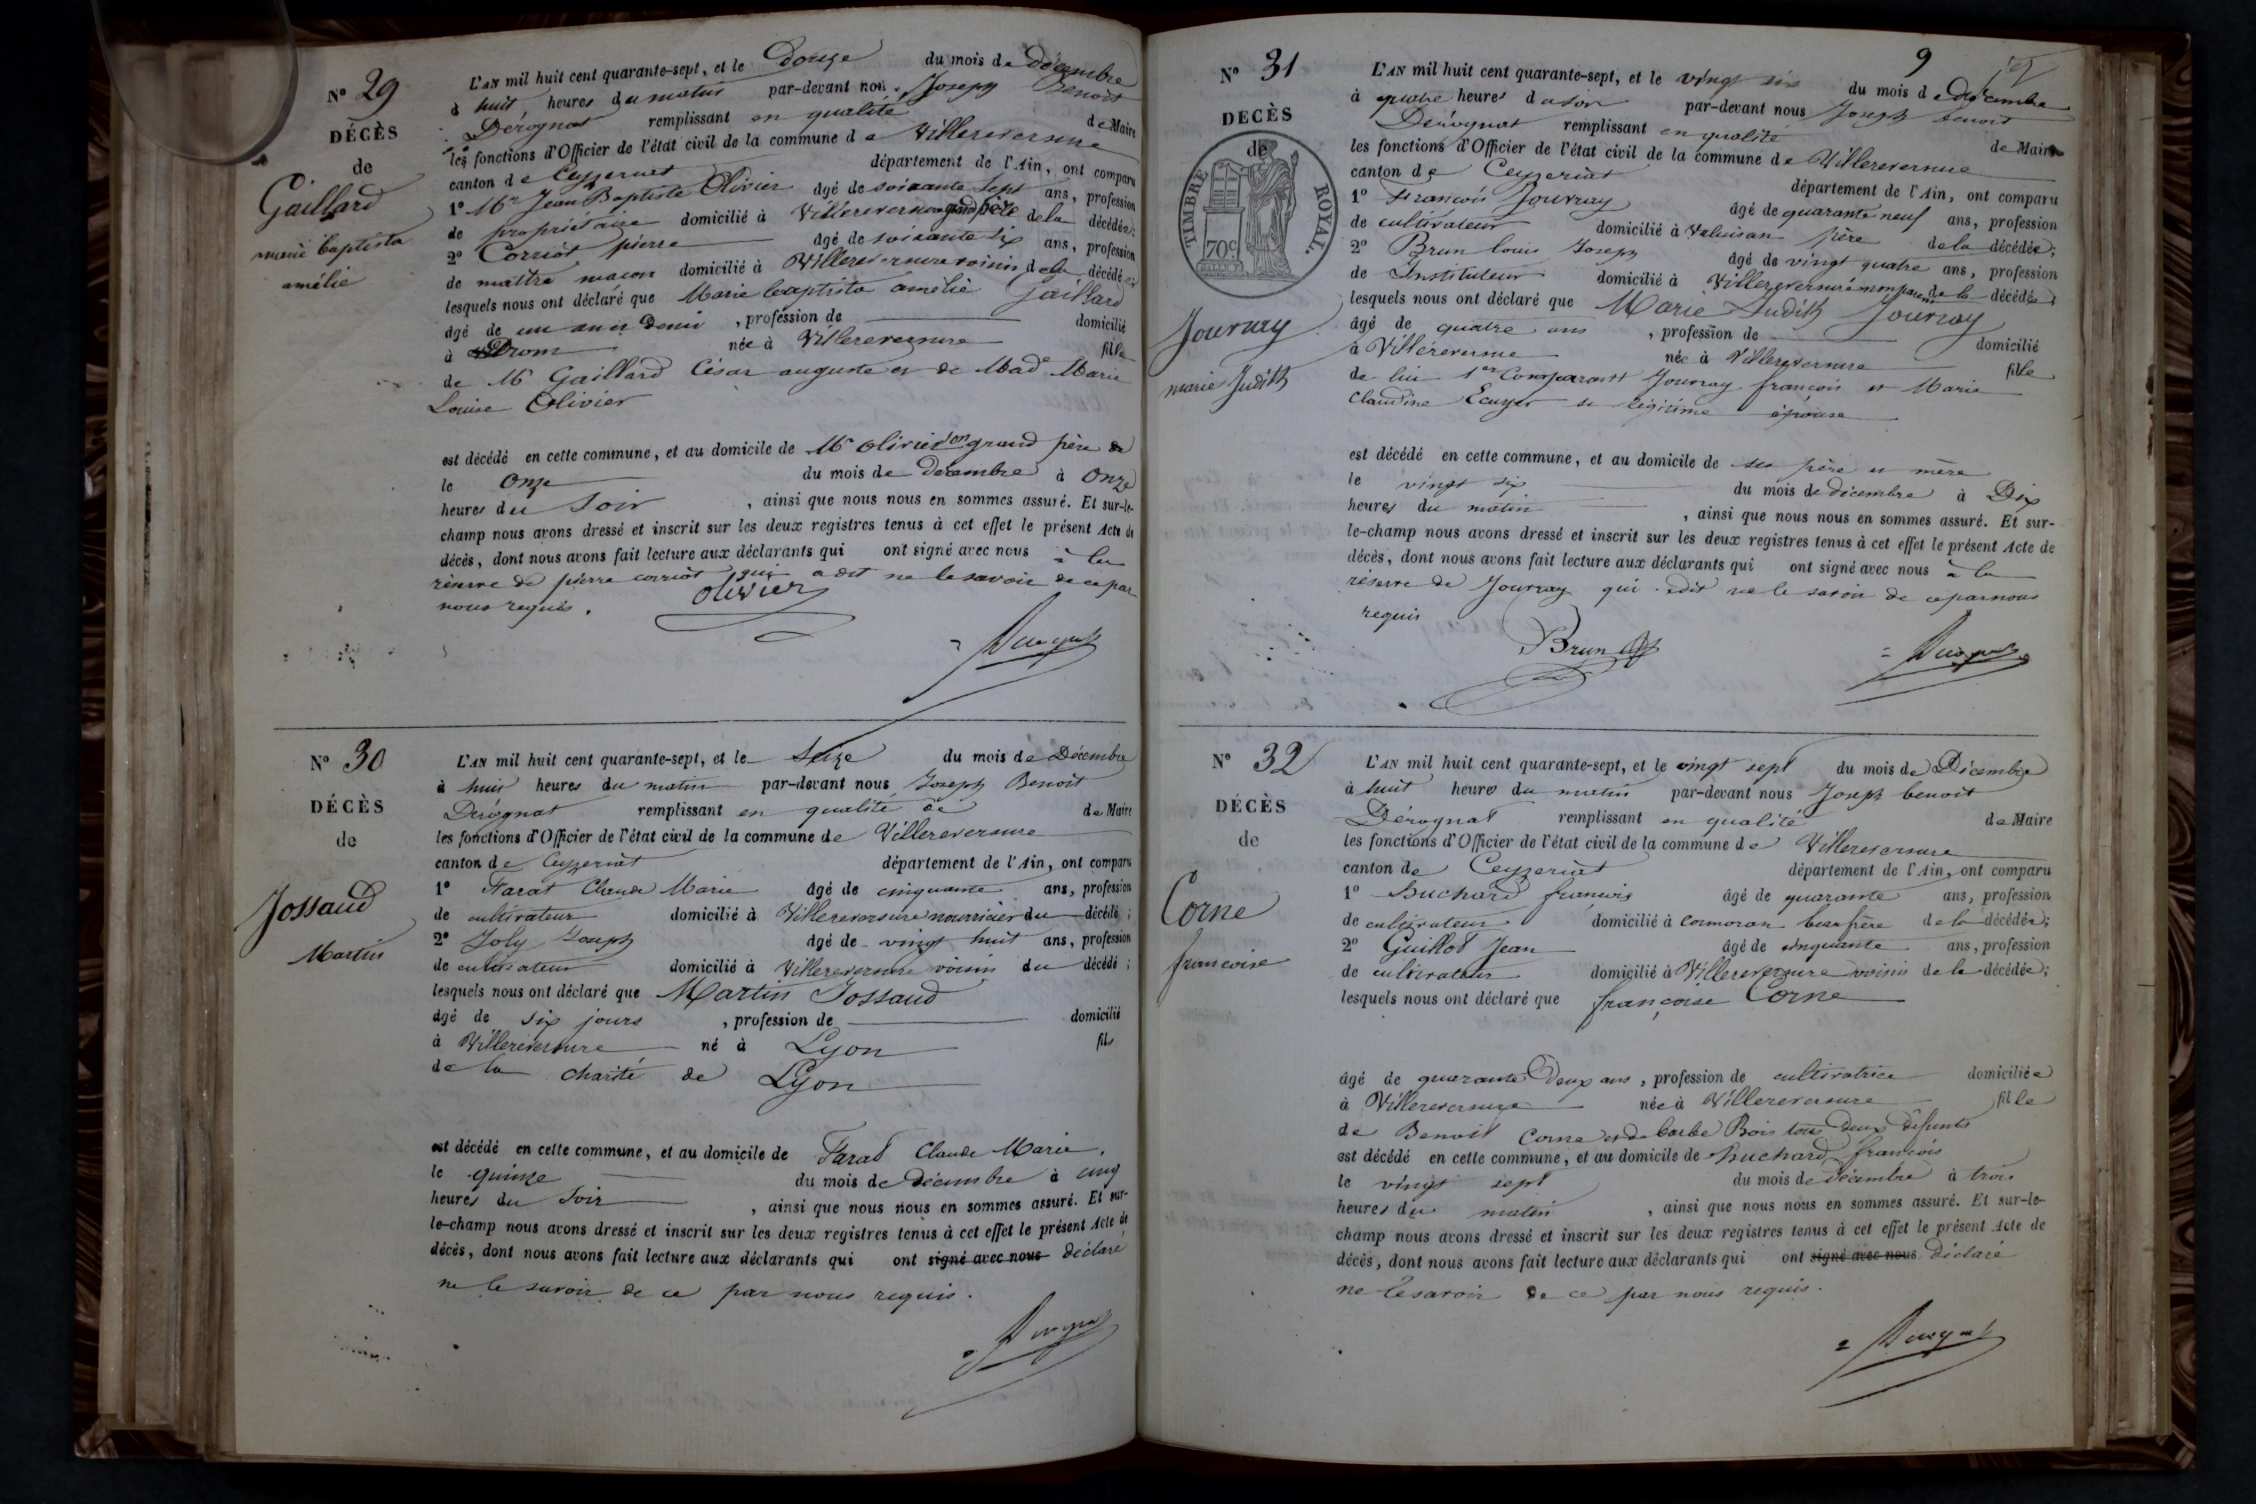 N° 29
DÉCÈS
de
Gaillard
marie baptista
amélie
L'AN mil huit cent quarante-sept, et le Douze du mois de décembre
à huit heures du matin par-devant nous Joseph Benoit
Dérognat remplissant en qualité de Maire
les fonctions d'Officier de l'état civil de la commune de Villereversure
canton de Ceyzeriat département de l'Ain, ont comparu
1° Mr Jean Baptiste Olivier âgé de soixante sept ans, profession
de propriétaire domicilié à Villereversure grand père de la décédée;
2° Corriot pierre âgé de soixante six ans, profession
de maître maçon domicilié à Villereversure voisin de la décédée
lesquels nous ont déclaré que Marie baptista amélie Gaillard
âgé de un an et demi, profession de domicilié
à Drom née à Villereversure fille
de Mr Gaillard César auguste et de Made Marie
Louise Olivier
est décédé en cette commune, et au domicile de Mr Olivier son grand père
le onze du mois de décembre à onze
heures du soir, ainsi que nous nous en sommes assuré. Et sur-le-
champ nous avons dressé et inscrit sur les deux registres tenus à cet effet le présent Acte de
décès, dont nous avons fait lecture aux déclarants qui ont signé avec nous à la
réserve de pierre corriot qui a dit ne le savoir de ce par
nous requis.
Olivier
N° 30
DÉCÈS
de
Jossaud
Martin
L'AN mil huit cent quarante-sept, et le seize du mois de Décembre
à huit heures du matin par-devant nous Joseph Benoit
Dérognat remplissant en qualité de de Maire
les fonctions d'Officier de l'état civil de la commune de Villereversure
canton de Ceyzeriat département de l'Ain, ont comparu
1° Farat Claude Marie âgé de cinquante ans, profession
de cultivateur domicilié à Villereversure nourricier du décédé;
2° Joly Joseph âgé de vingt huit ans, profession
de cultivateur domicilié à Villereversure voisin du décédé;
lesquels nous ont déclaré que Martin Jossaud
âgé de six jours, profession de domicilié
à Villereversure né à Lyon fils
de la charité de Lyon
est décédé en cette commune, et au domicile de Farat Claude Marie,
le quinze du mois de décembre à cinq
heures du soir, ainsi que nous nous en sommes assuré. Et sur-
le-champ nous avons dressé et inscrit sur les deux registres tenus à cet effet le présent Acte de
décès, dont nous avons fait lecture aux déclarants qui ont signé avec nous déclaré
ne le savoir de ce par nous requis.
9
N° 31
DÉCÈS
de
TIMBRE ROYAL
70c
Jourray
marie Judith
L'AN mil huit cent quarante-sept, et le vingt six du mois de décembre
à quatre heures du soir par-devant nous Joseph benoit
Dérognat remplissant en qualité de Maire
les fonctions d'Officier de l'état civil de la commune de Villereversure
canton de Ceyzeriat département de l'Ain, ont comparu
1° François Jourray âgé de quarante neuf ans, profession
de cultivateur domicilié à père de la décédée;
2° Brun louis Joseph âgé de vingt quatre ans, profession
de Instituteur domicilié à Villereversure non parent de la décédée;
lesquels nous ont déclaré que Marie Judith Jourray
âgé de quatre ans, profession de domicilié
à Villereversure née à Villereversure fille
de lui 1er Comparant Jourray françois et Marie
Claudine Ecuyer sa légitime épouse
est décédé en cette commune, et au domicile de ses père et mère
le vingt six du mois de décembre à Dix
heures du matin, ainsi que nous nous en sommes assuré. Et sur-
le-champ nous avons dressé et inscrit sur les deux registres tenus à cet effet le présent Acte de
décès, dont nous avons fait lecture aux déclarants qui ont signé avec nous à la
réserve de Jourray qui a dit ne le savoir de ce par nous
requis
Brun
N° 32
DÉCÈS
de
Corne
francoise
L'AN mil huit cent quarante-sept, et le vingt sept du mois de Décembre
à huit heures du matin par-devant nous Joseph benoit
Dérognat remplissant en qualité de Maire
les fonctions d'Officier de l'état civil de la commune de Villereversure
canton de Ceyzeriat département de l'Ain, ont comparu
1° Buchard francois âgé de quarante ans, profession
de cultivateur domicilié à cormoran beau frère de la décédée;
2° Guillot Jean âgé de cinquante ans, profession
de cultivateur domicilié à Villereversure voisin de la décédée;
lesquels nous ont déclaré que françoise Corne
âgé de quarante Deux ans, profession de cultivatrice domiciliée
à Villereversure née à Villereversure fille
de Benoit Corne et de barbe Bois tous deux défunts
est décédé en cette commune, et au domicile de buchard françois
le vingt sept du mois de décembre à trois
heures du matin, ainsi que nous nous en sommes assuré. Et sur-le-
champ nous avons dressé et inscrit sur les deux registres tenus à cet effet le présent Acte de
décès, dont nous avons fait lecture aux déclarants qui ont signé avec nous déclaré
ne le savoir de ce par nous requis.